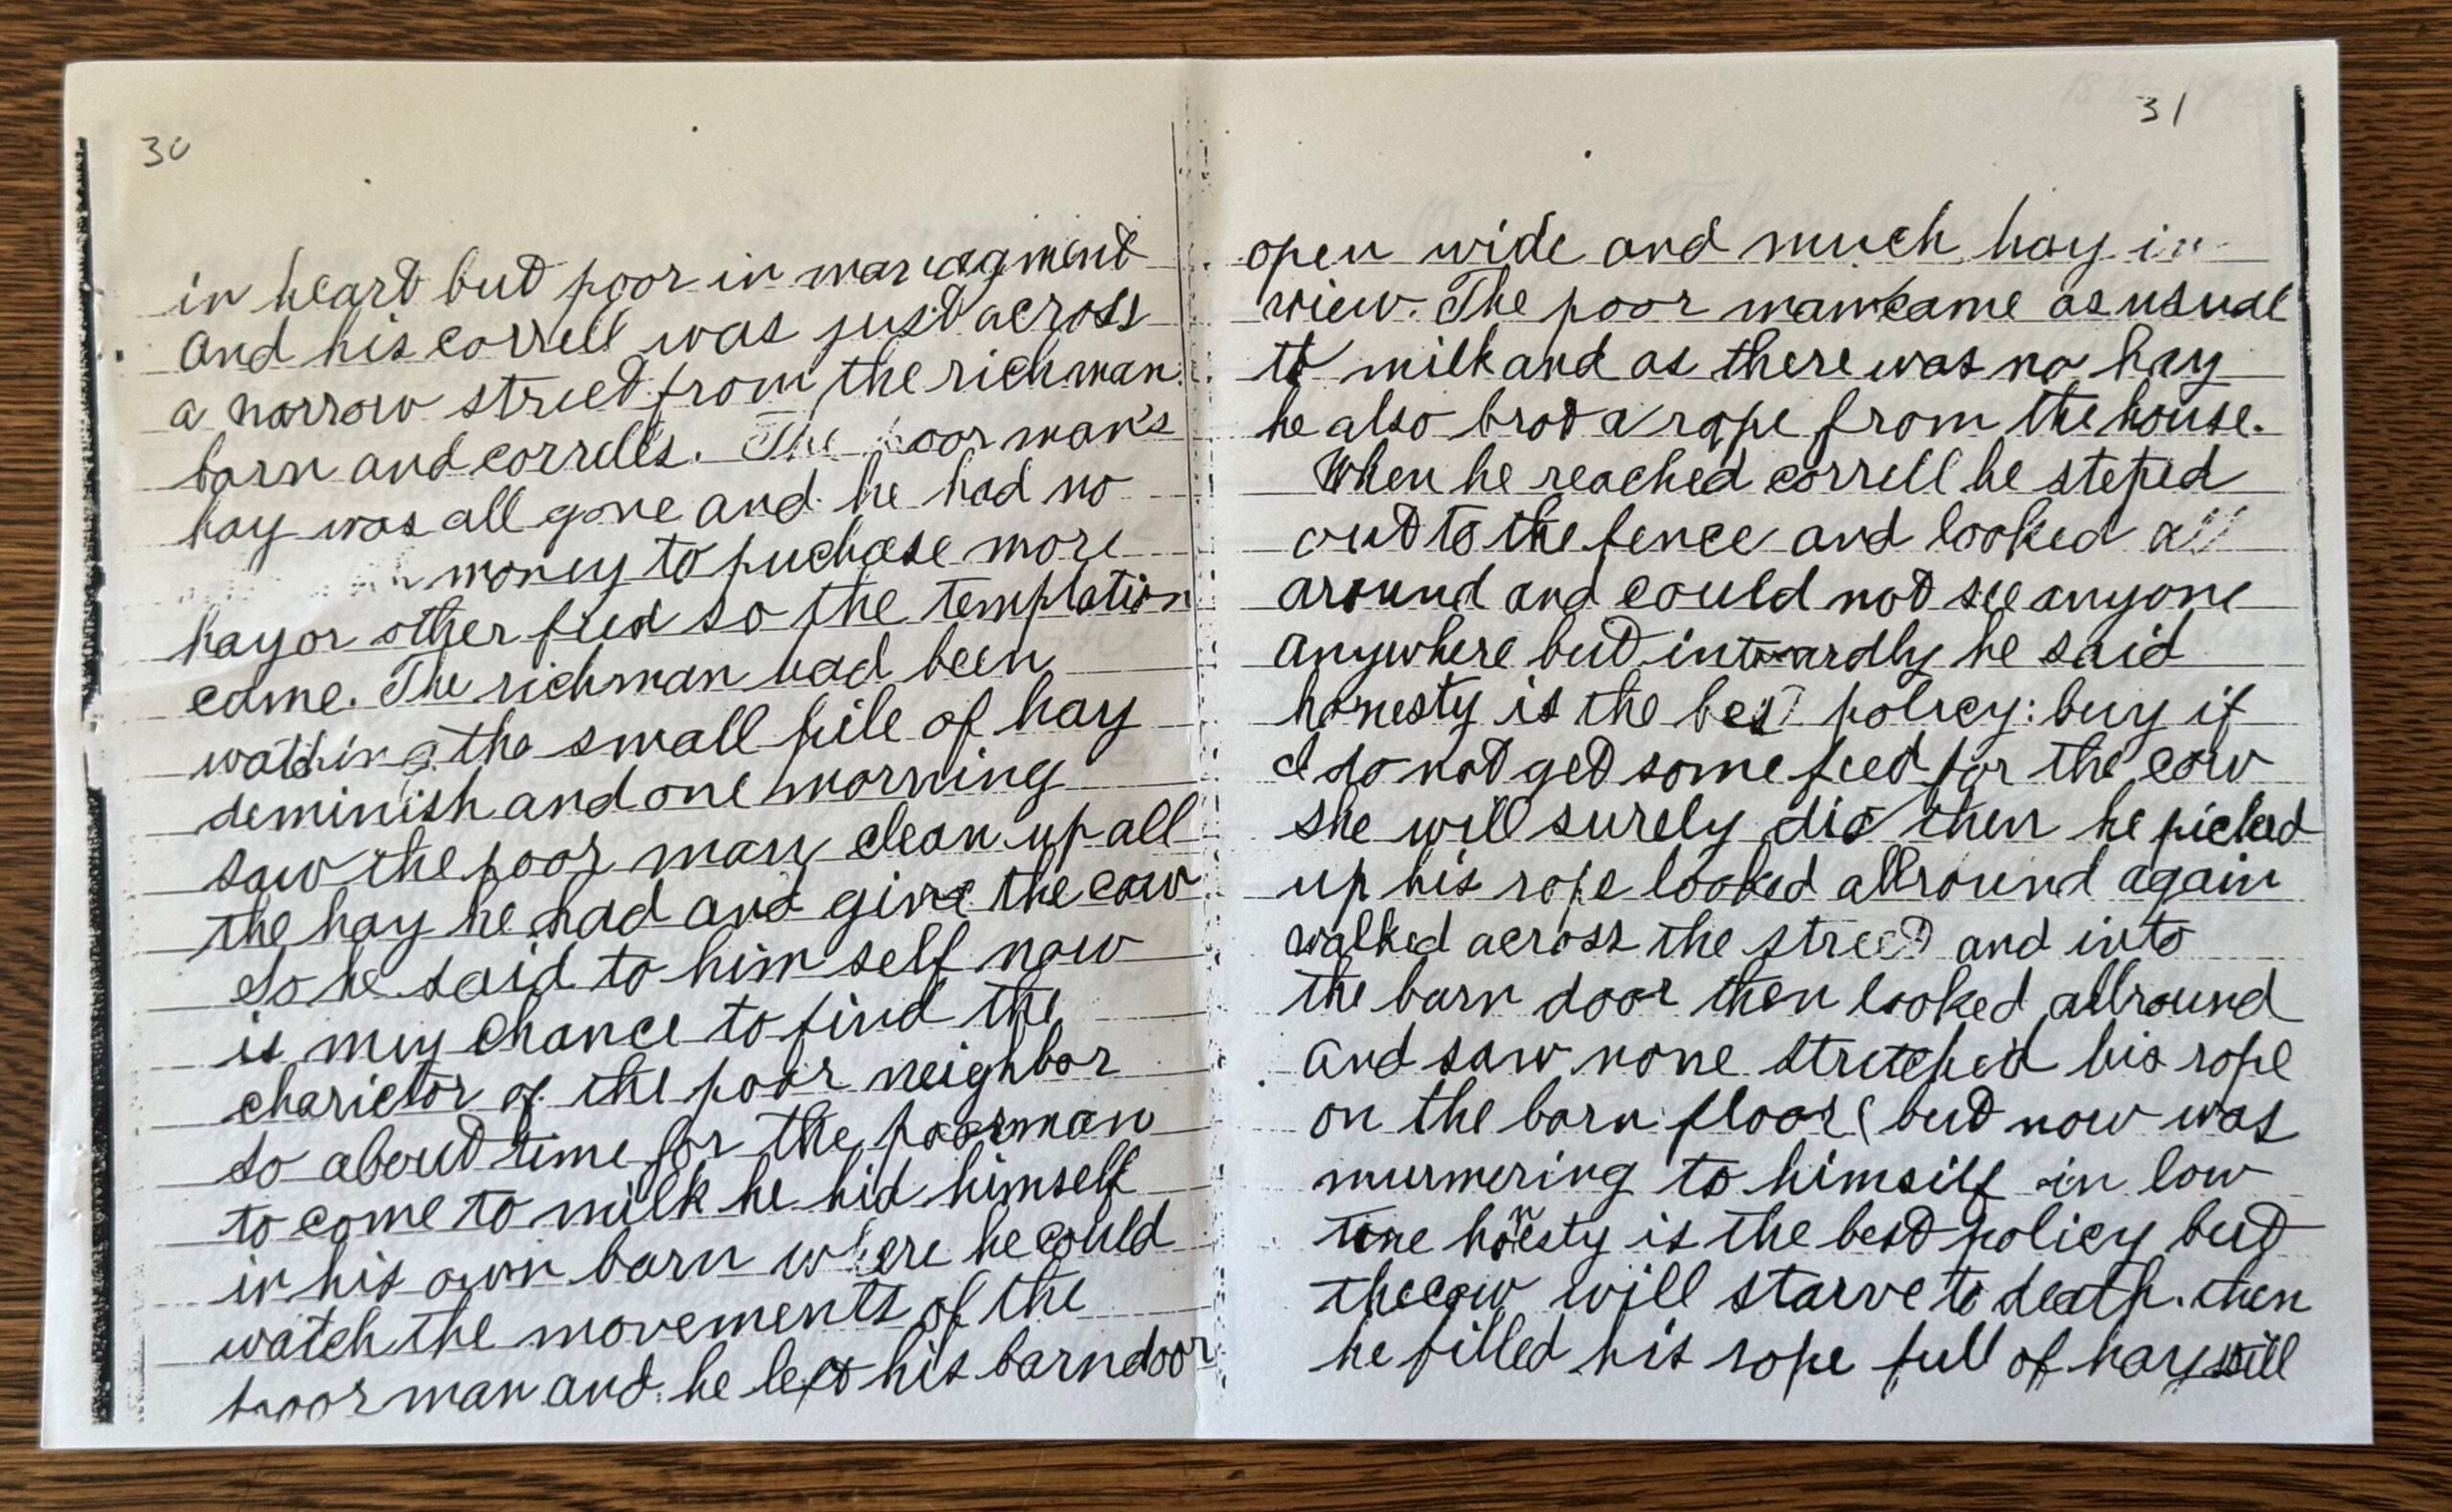 30
in heart but poor in managment
And his correll was just across
a norrow street from the richman
barn and corrells. The poor man's
hay was all gone and he had no
money to puchase more
hay or other feed so the temptation
came. The richman had been
watching the small pile of hay
deminish and one morning
saw the poor man clean up all
the hay he had and give the cow
So he said to him self now
is my chance to find the
charictor of the poor neighbor
so about time for the poorman
to come to milk he hid himself
in his own barn where he could
watch the movements of the
poor man and he left his barndoor
31
open wide and much hay in
view. The poor man came as usual
to milk and as there was no hay
he also brot a rope from the house.
When he reached correll he steped
out to the fence and looked all
around and could not see anyone
anywhere but intwardly he said
honesty is the best policy: buy if
I do not get some feed for the cow
she will surely die then he picked
up his rope looked allround again
walked across the street and into
the barn door then looked allround
and saw none stretched his rope
on the barn floor (but now was
murmering to himself in low
tone honesty is the best policy but
the cow will starve to death. then
he filled his rope full of hay still